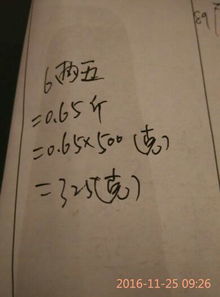 6两五
=0.65斤
=0.65×500(克)
=325(克)
89
2016-11-25 09:26